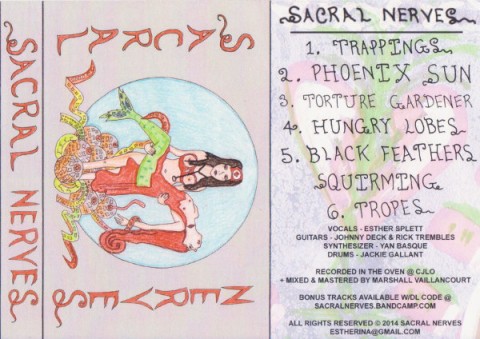 SACRAL NERVES
SACRAL
NERVES
SACRAL NERVES
1. TRAPPINGS
2. PHOENIX SUN
3. TORTURE GARDENER
4. HUNGRY LOBES
5. BLACK FEATHERS
SQUIRMING
6. TROPES
VOCALS - ESTHER SPLETT
GUITARS - JOHNNY DECK & RICK TREMBLES
SYNTHESIZER - YAN BASQUE
DRUMS - JACKIE GALLANT
RECORDED IN THE OVEN @ CJLO
+ MIXED & MASTERED BY MARSHALL VAILLANCOURT
BONUS TRACKS AVAILABLE W/DL CODE @
SACRALNERVES.BANDCAMP.COM
ALL RIGHTS RESERVED © 2014 SACRAL NERVES
ESTHERINA@GMAIL.COM